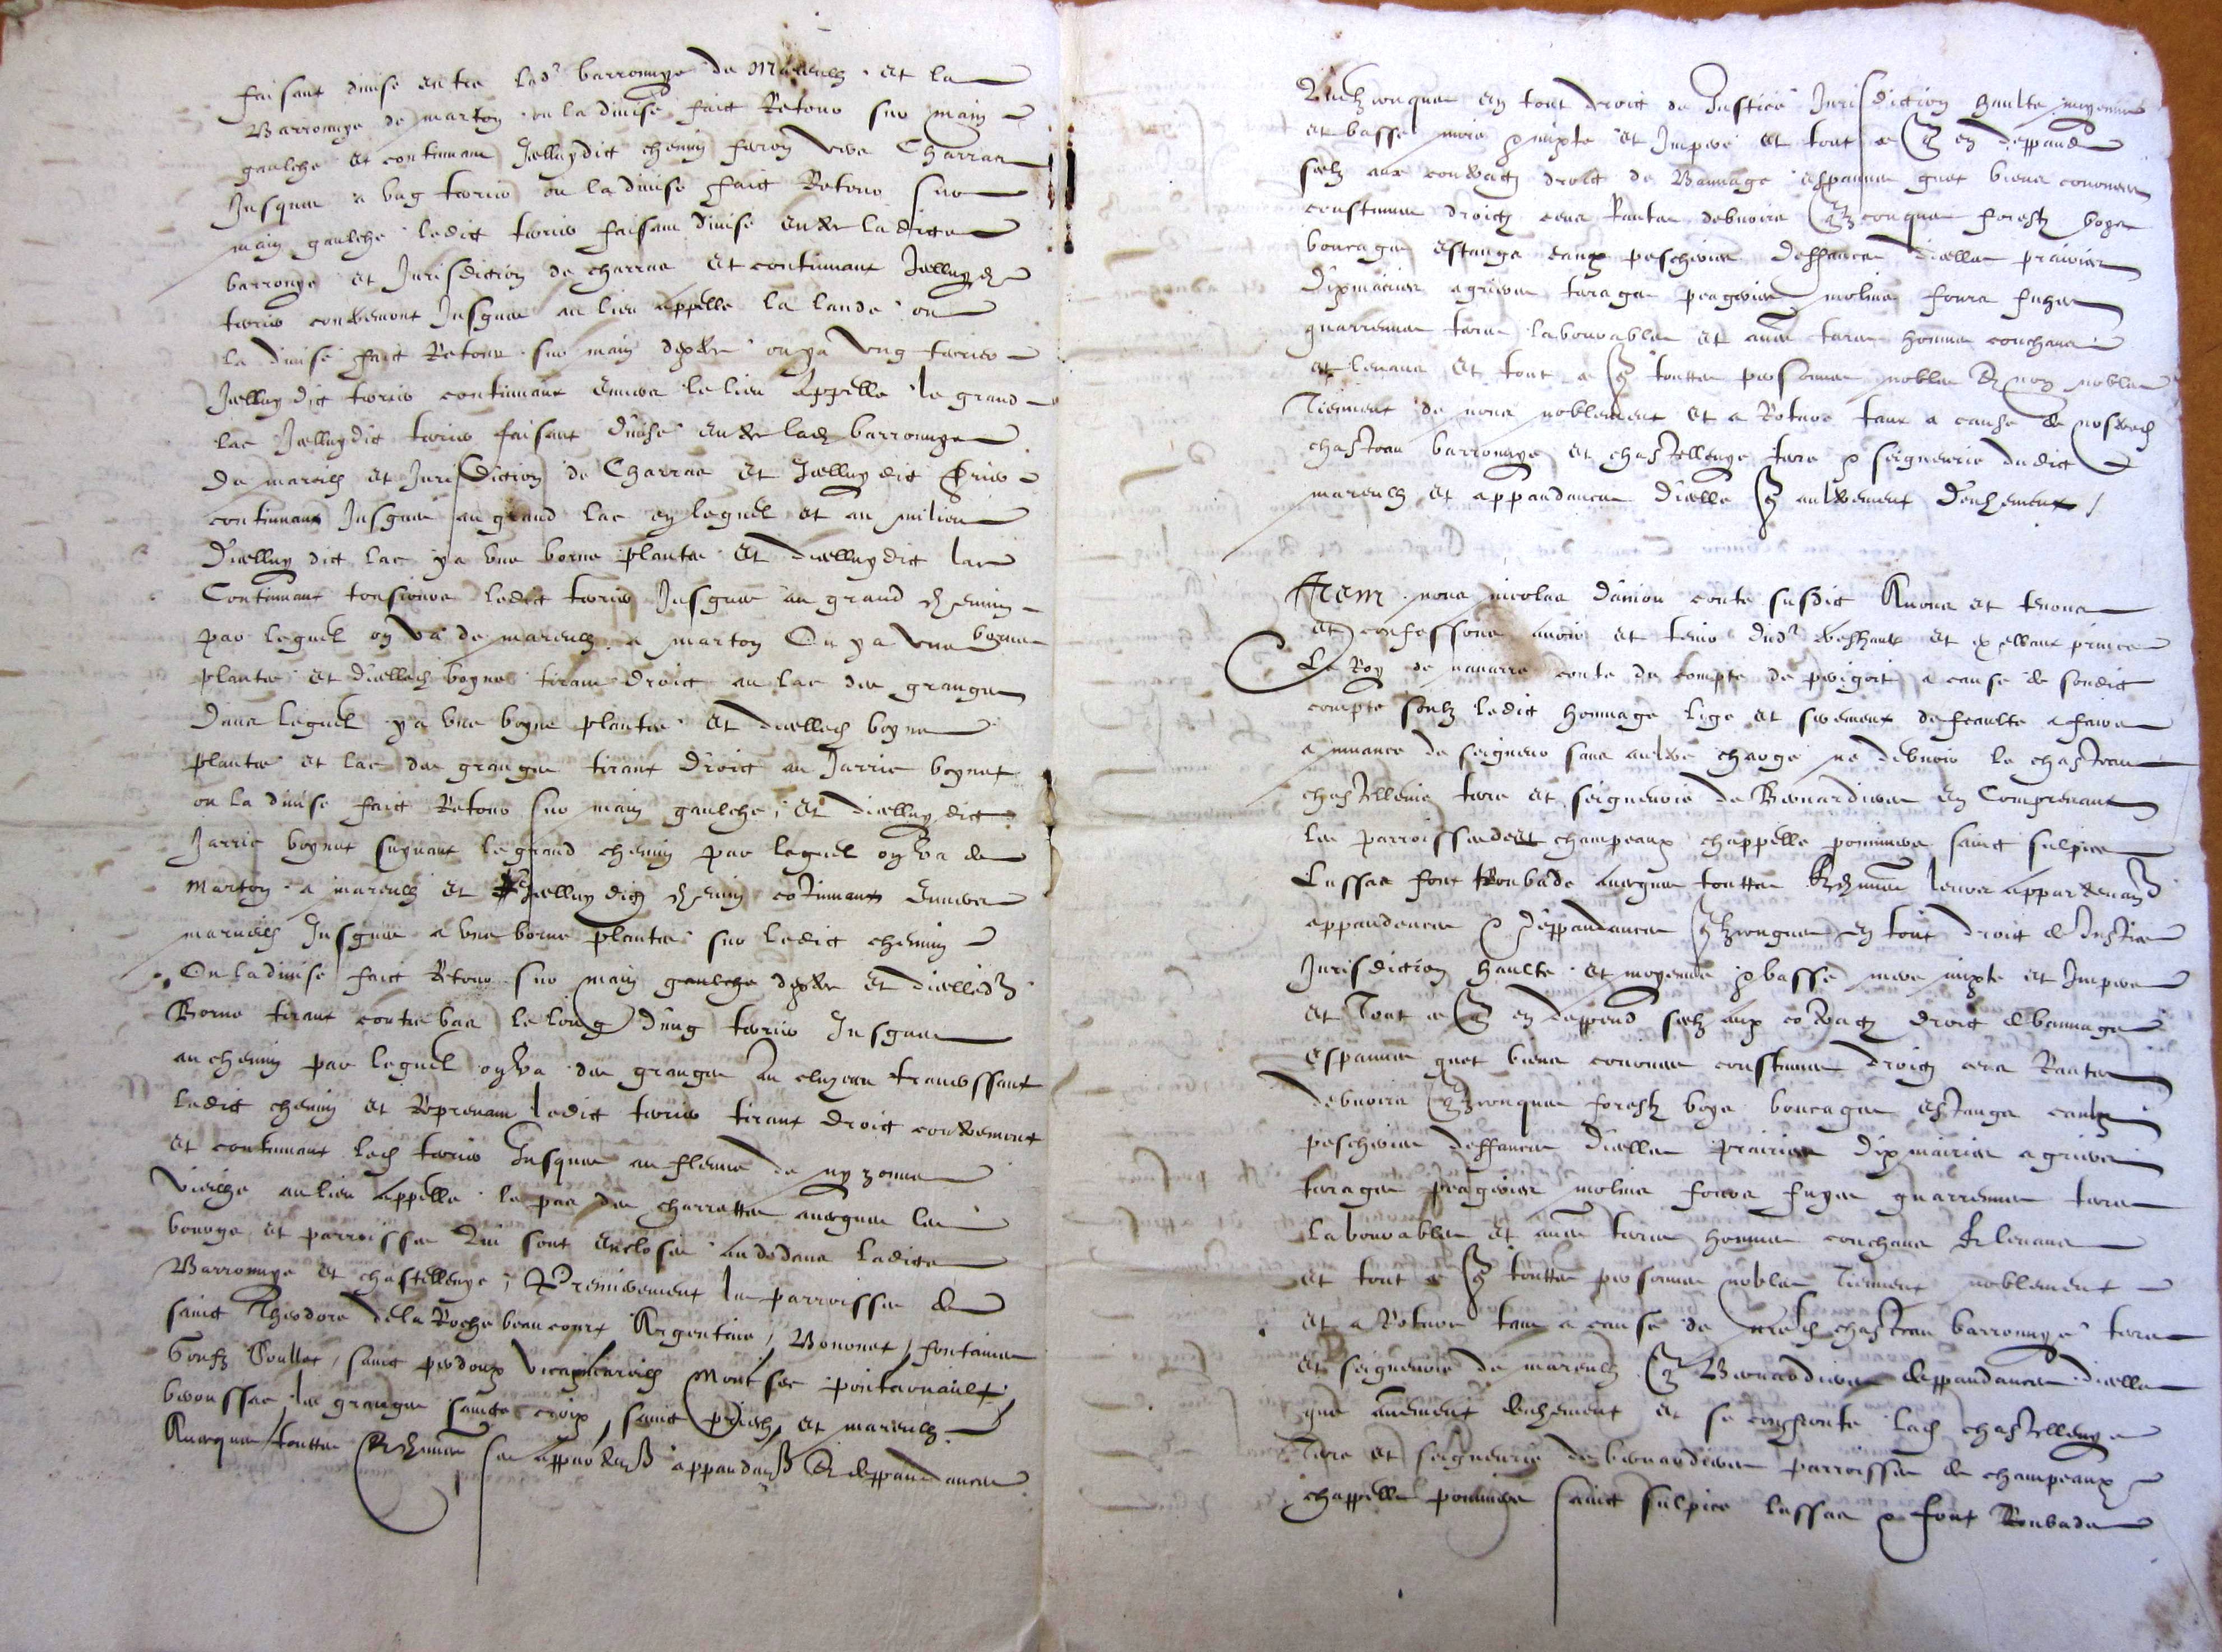 faisant divise entre lad barronnye de Mareulh et la
Barronnye de marton ou la divise faict Retour sur main
gaulche et continuant Jcelluydict chemin feron vers Charras
Jusques a ung terrier ou la divise faict Retour sur
main gaulche ledict terrier faisant divise entre ladicte
barronye et Jurisdiction de charras et continuant Jcelluyd
terrier contremont Jusques au lieu appelle la lande ou
la divise faict Retour sur main dextre ou ya ung terrier
Jcelluy dict terrier continuant envers le lieu appelle le grand
lac Jcelluydict terrier faisant divise entre lad barronnye
de mareulh et Jurisdiction de Charras et Jcelluy dict terrier
continuant Jusques au grand lac en lequel et au milieu
Dicelluy dict lac ya une borne plantee et dicelluydict lac
Continuant tousiours ledict terrier Jusques au grand chemin
par lequel on va de mareulh a marton Ou ya une borne
plantee et dicelle borne tirant droict au lac des granges
Dans lequel ya une borne plantee et dicelle borne
plantee et lac des granges tirant droict au Jarric boynat
ou la divise faict Retour sur main gaulche, et dicelluy dict
Jarric boynat suyvant le grand chemin par lequel on va de
Marton a mareulh et Jcelluy dict chemin continuant envers
mareulh Jusques a une borne plantee sur ledict chemin
Ou la divise faict Retour sur main gaulche dextre et dicelle
Borne tirant contrebas le long dung terrier Jusques
au chemin par lequel on va des granges au cluzeau traverssant
ledict chemin et Reprenant ledict terrier tirant droict contremont
et continuant led terrier Jusques au fleuve de nyzonne
vieilhe au lieu appelle le pas des charrettes avecques les
bourgs et parroisses Qui sont encloses au dedans ladicte
Barronnye et chastellenye, Premierement les parroisses de
sainct Theodore de la Roche beaucourt Argentine, Bononet, fontaines
Goustz Roullet, sainct perdoux vieumareulh Montsec pontarnault
beoussac, les granges saincte croix, sainct priech, et mareulh
Avecques touttes leurs appartenances appandances et deppandances

Quelzconques en tout droict de Justice Jurisdiction haulte moyenne
et basse mere mixte et Impere et tout ce que en deppand
seelz aux contractz droict de Bannage espannes guet biens communs
coustumes droictz cens Rentes debvoirs quelzconques forestz boys
boucages estangs eaux pescheries deffances dicelles prairies
Dixmaries agrieres terages peageries molins fours fuyes
guarrennes terres labourables et aultres terres hommes couchans
et levans et tout ce que touttes personnes nobles et non nobles
Tiennent de nous noblement et a Roture tant a cause de nosd
chasteau barronnye et chastellenye terre et seigneurie dudict
mareulh et appandances dicelle que aultrement deuhement /

Item nous nicolas danjou conte susdict Avons et tenons
et confessons avoir et tenir dud treshault et excellant prince
Le Roy de navarre conte du compte de perigort a cause de sondict
compte soubz ledict hommage lige et serement de feaulte a faire
a muance de seigneur sans aultre charge ne debvoir le chasteau
chastellenie terre et seigneurie de Bernardieres en Comprenant
les parroisses de champeaux chappelle pommiers sainct sulpice
Lussas font Roubade avecques touttes leurs appartenances
appandences et deppandances quelzconques en tout droict de Justice
Jurisdiction haulte et moyenne et basse mere mixte et Impere
et Tout ce que en deppend seelz aux contractz droict de bannage
espannes guet biens communs coustumes droictz cens Rentes
debvoirs quelzconques forestz boys boucages estangs eaulx
pescheries deffances dicelles prairies dixmairies agrieres
terages peageries molins fours fuyes guarrennes terres
labourables et aultres terres hommes couchans et levans
et tout ce que touttes personnes nobles Tiennent noblement
et a Roture tant a cause de chasteau barronnye terre
et seigneurie de mareulh que Bernardieres deppandances dicelle
que aultrement deuhement et se confronte lad chastellenye
Terre et seigneurie de bernardieres parroisses de champeaux
chappelle pommiers sainct sulpice lussas et font Roubade